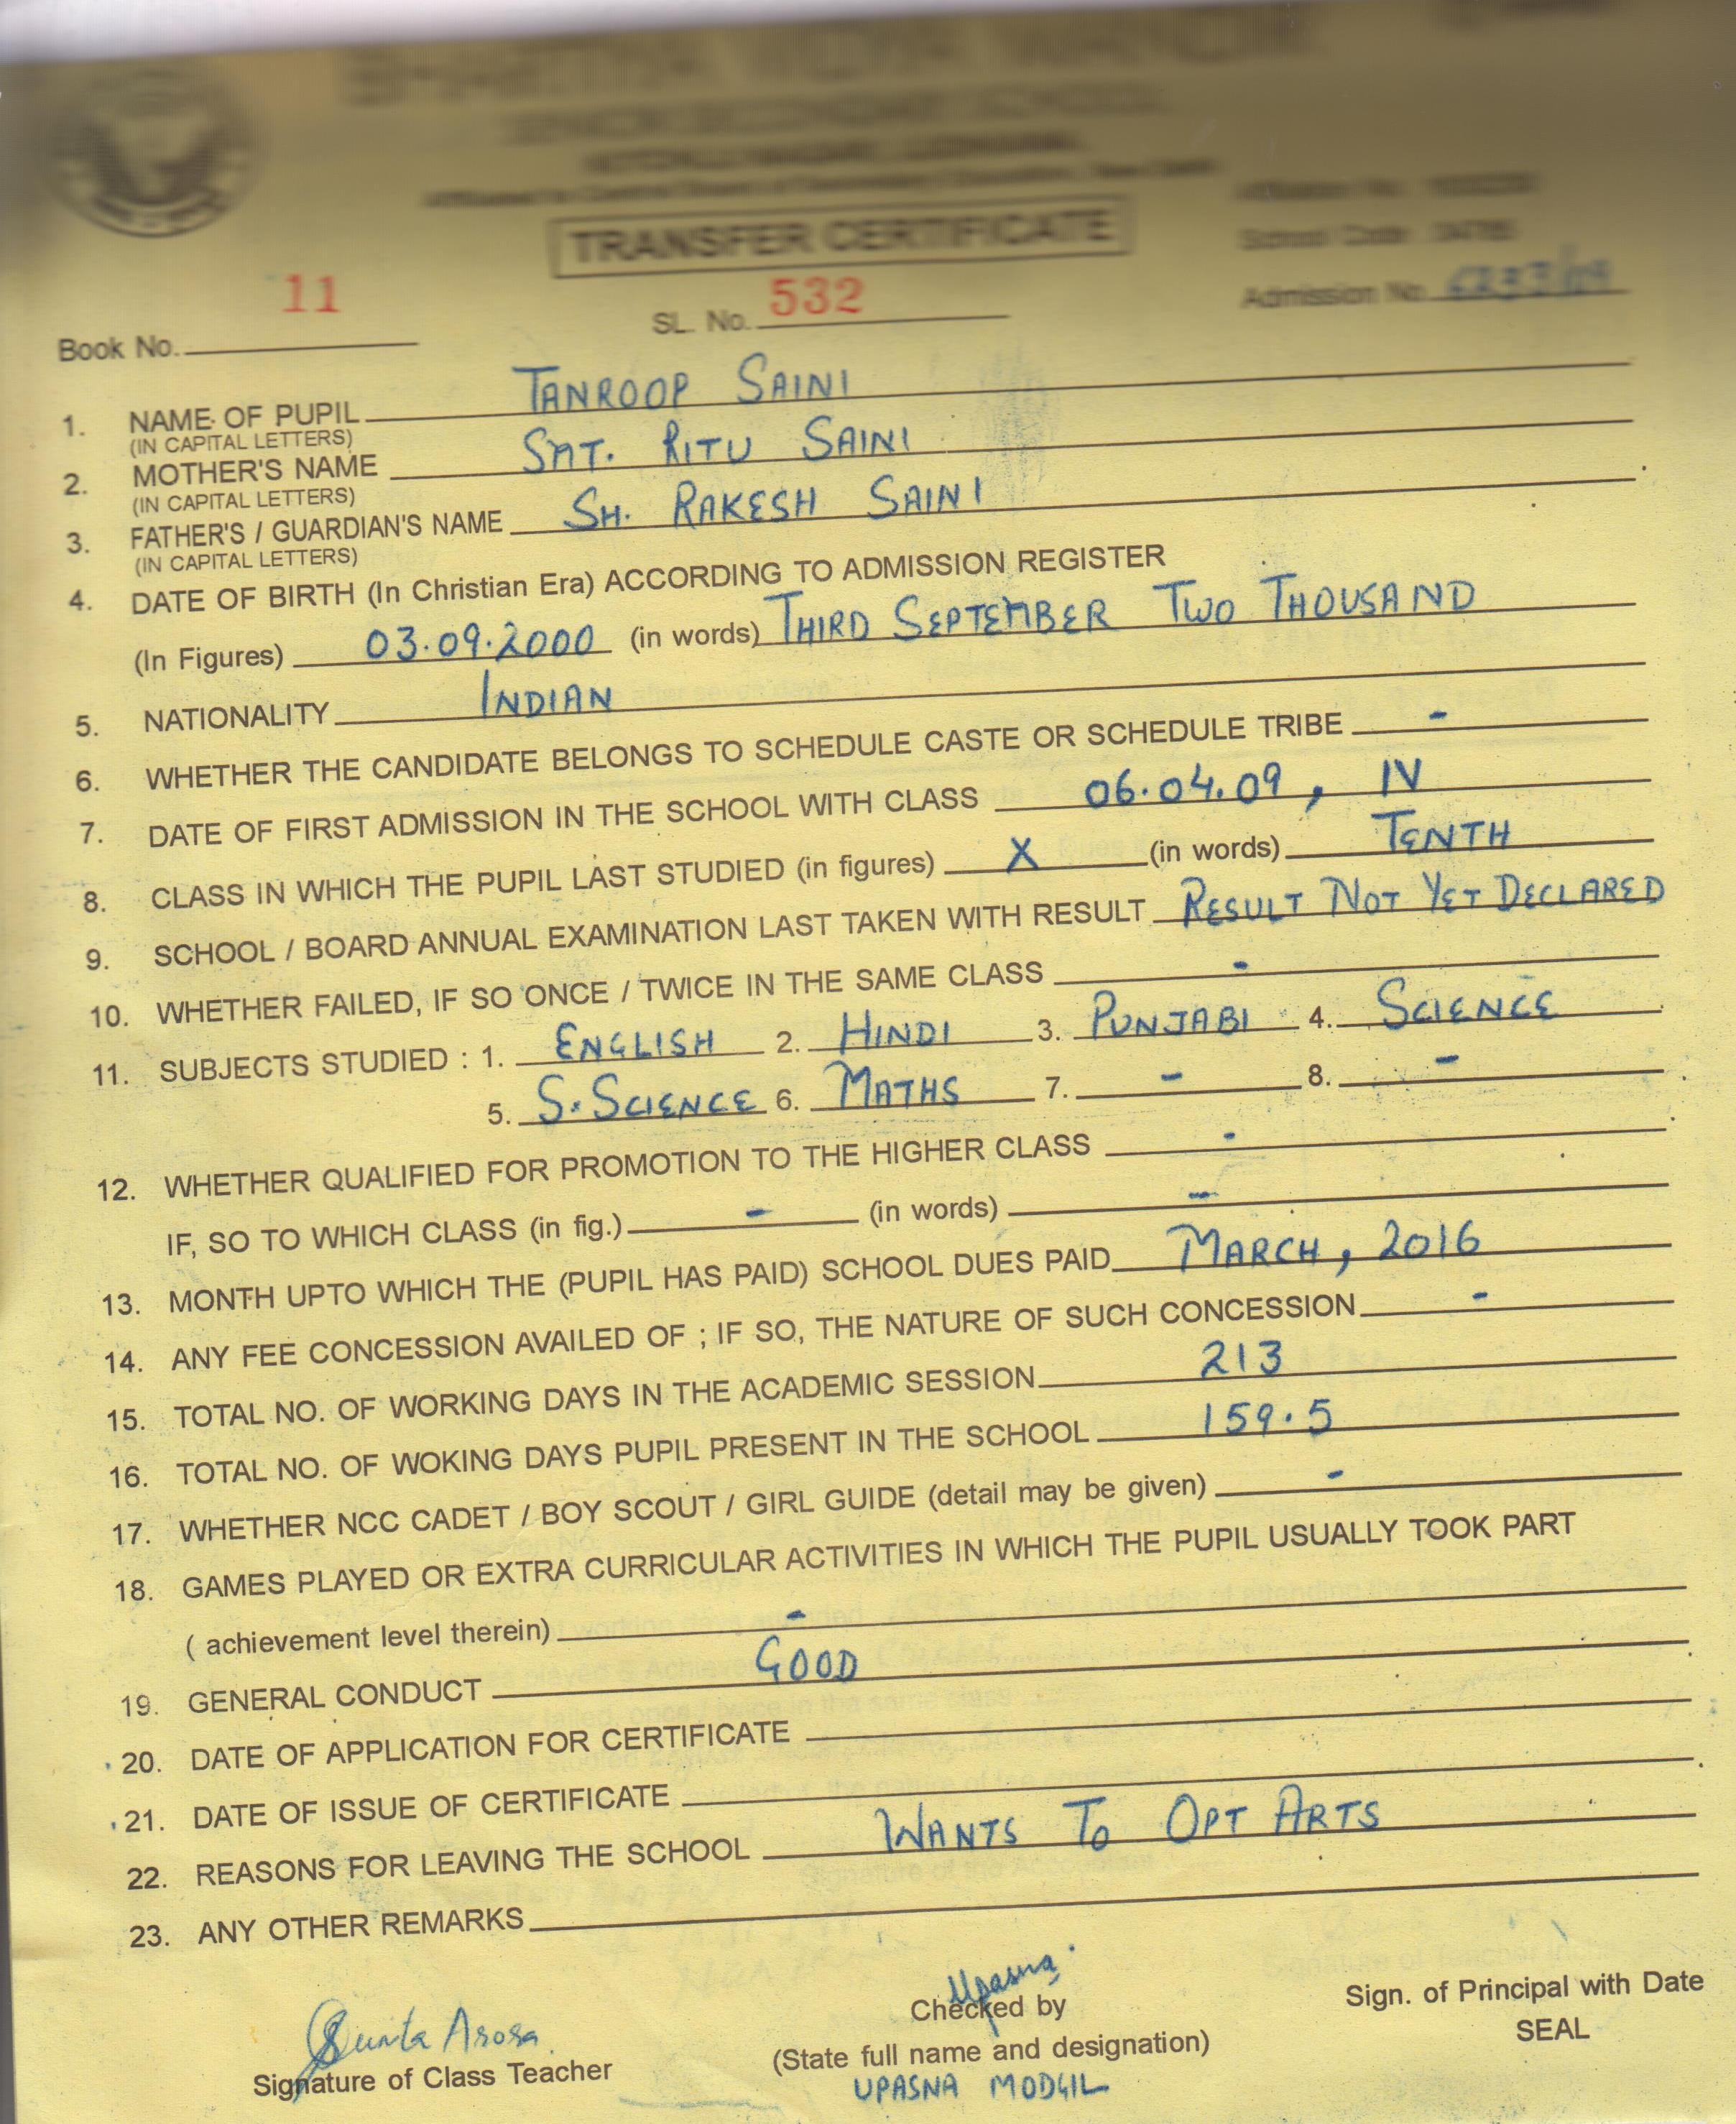 SENIOR SECONDARY SCHOOL
TRANSFER CERTIFICATE
School Code
Book No. 11 SL. No. 532 Admission No.
1. NAME OF PUPIL TANROOP SAINI
(IN CAPITAL LETTERS)
2. MOTHER'S NAME SMT. RITU SAINI
(IN CAPITAL LETTERS)
3. FATHER'S / GUARDIAN'S NAME SH. RAKESH SAINI
(IN CAPITAL LETTERS)
4. DATE OF BIRTH (In Christian Era) ACCORDING TO ADMISSION REGISTER
(In Figures) 03.09.2000 (in words) THIRD SEPTEMBER TWO THOUSAND
5. NATIONALITY INDIAN
6. WHETHER THE CANDIDATE BELONGS TO SCHEDULE CASTE OR SCHEDULE TRIBE -
7. DATE OF FIRST ADMISSION IN THE SCHOOL WITH CLASS 06.04.09, IV
8. CLASS IN WHICH THE PUPIL LAST STUDIED (in figures) X (in words) TENTH
9. SCHOOL / BOARD ANNUAL EXAMINATION LAST TAKEN WITH RESULT RESULT NOT YET DECLARED
10. WHETHER FAILED, IF SO ONCE / TWICE IN THE SAME CLASS -
11. SUBJECTS STUDIED : 1. ENGLISH 2. HINDI 3. PUNJABI 4. SCIENCE
5. S.SCIENCE 6. MATHS 7. - 8. -
12. WHETHER QUALIFIED FOR PROMOTION TO THE HIGHER CLASS -
IF, SO TO WHICH CLASS (in fig.) - (in words) -
13. MONTH UPTO WHICH THE (PUPIL HAS PAID) SCHOOL DUES PAID MARCH, 2016
14. ANY FEE CONCESSION AVAILED OF ; IF SO, THE NATURE OF SUCH CONCESSION -
15. TOTAL NO. OF WORKING DAYS IN THE ACADEMIC SESSION 213
16. TOTAL NO. OF WOKING DAYS PUPIL PRESENT IN THE SCHOOL 159.5
17. WHETHER NCC CADET / BOY SCOUT / GIRL GUIDE (detail may be given) -
18. GAMES PLAYED OR EXTRA CURRICULAR ACTIVITIES IN WHICH THE PUPIL USUALLY TOOK PART
( achievement level therein) -
19. GENERAL CONDUCT GOOD
20. DATE OF APPLICATION FOR CERTIFICATE
21. DATE OF ISSUE OF CERTIFICATE
22. REASONS FOR LEAVING THE SCHOOL WANTS TO OPT ARTS
23. ANY OTHER REMARKS
Upasna
Checked by Sign. of Principal with Date
Arora
Signature of Class Teacher (State full name and designation) SEAL
UPASNA MODGIL